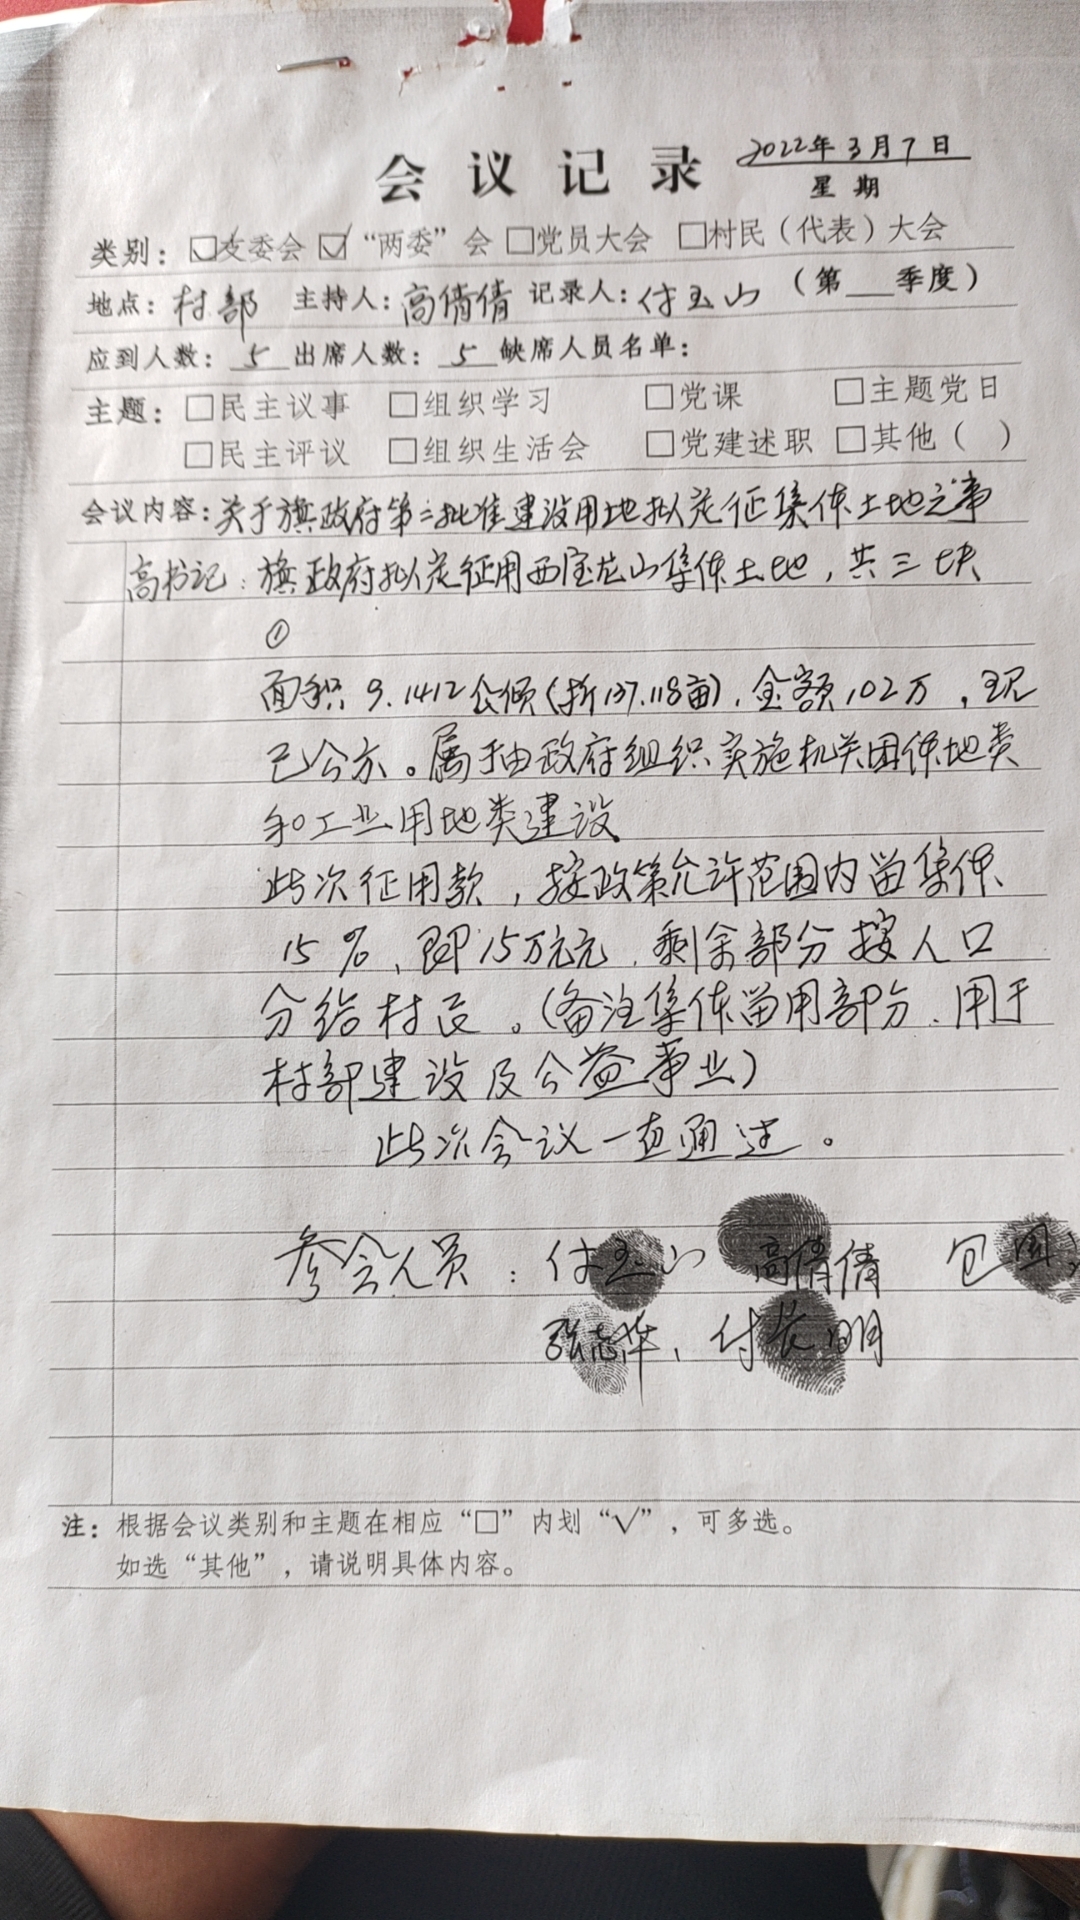 会议记录 2022年3月7日
星期
类别：☑支委会 ☑“两委”会 □党员大会 □村民（代表）大会
地点：村部 主持人：高倩倩 记录人：付玉山 （第__季度）
应到人数：5 出席人数：5 缺席人员名单：
主题：□民主议事 □组织学习 □党课 □主题党日
□民主评议 □组织生活会 □党建述职 □其他（ ）
会议内容：关于旗政府第二批准建设用地拟定征集体土地之事
高书记：旗政府拟定征用西宝龙山集体土地，共三块
①
面积9.1412公倾(折137.118亩)，金额102万，现
已公示。属于由政府组织实施机关团体地类
和工业用地类建设
此次征用款，按政策允许范围内留集体
15%、即15万元元，剩余部分按人口
分给村民。(备注集体留用部分、用于
村部建设及公益事业)
此次会议一直通过。
参会人员：付玉山 高倩倩 包国
张志华、付长明
注：根据会议类别和主题在相应“□”内划“√”，可多选。
如选“其他”，请说明具体内容。